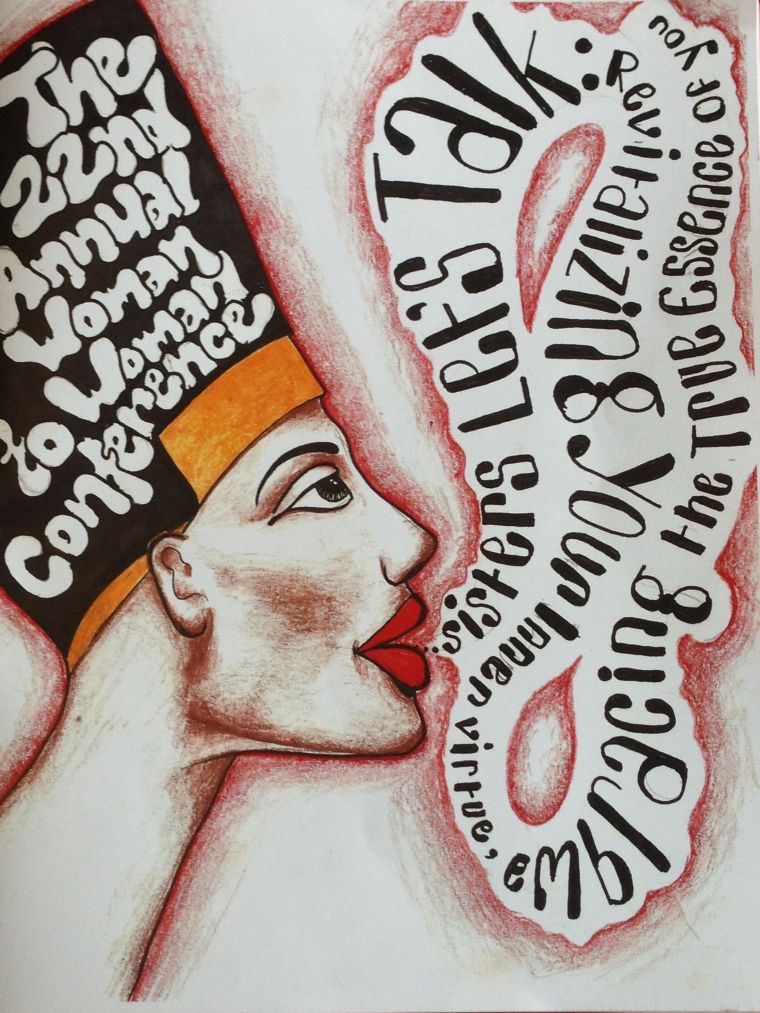 The
22nd
Annual
Woman
to Woman
Conference
Sisters Let's Talk:
Revitalizing Your Inner virtue,
embracing the True Essence of You